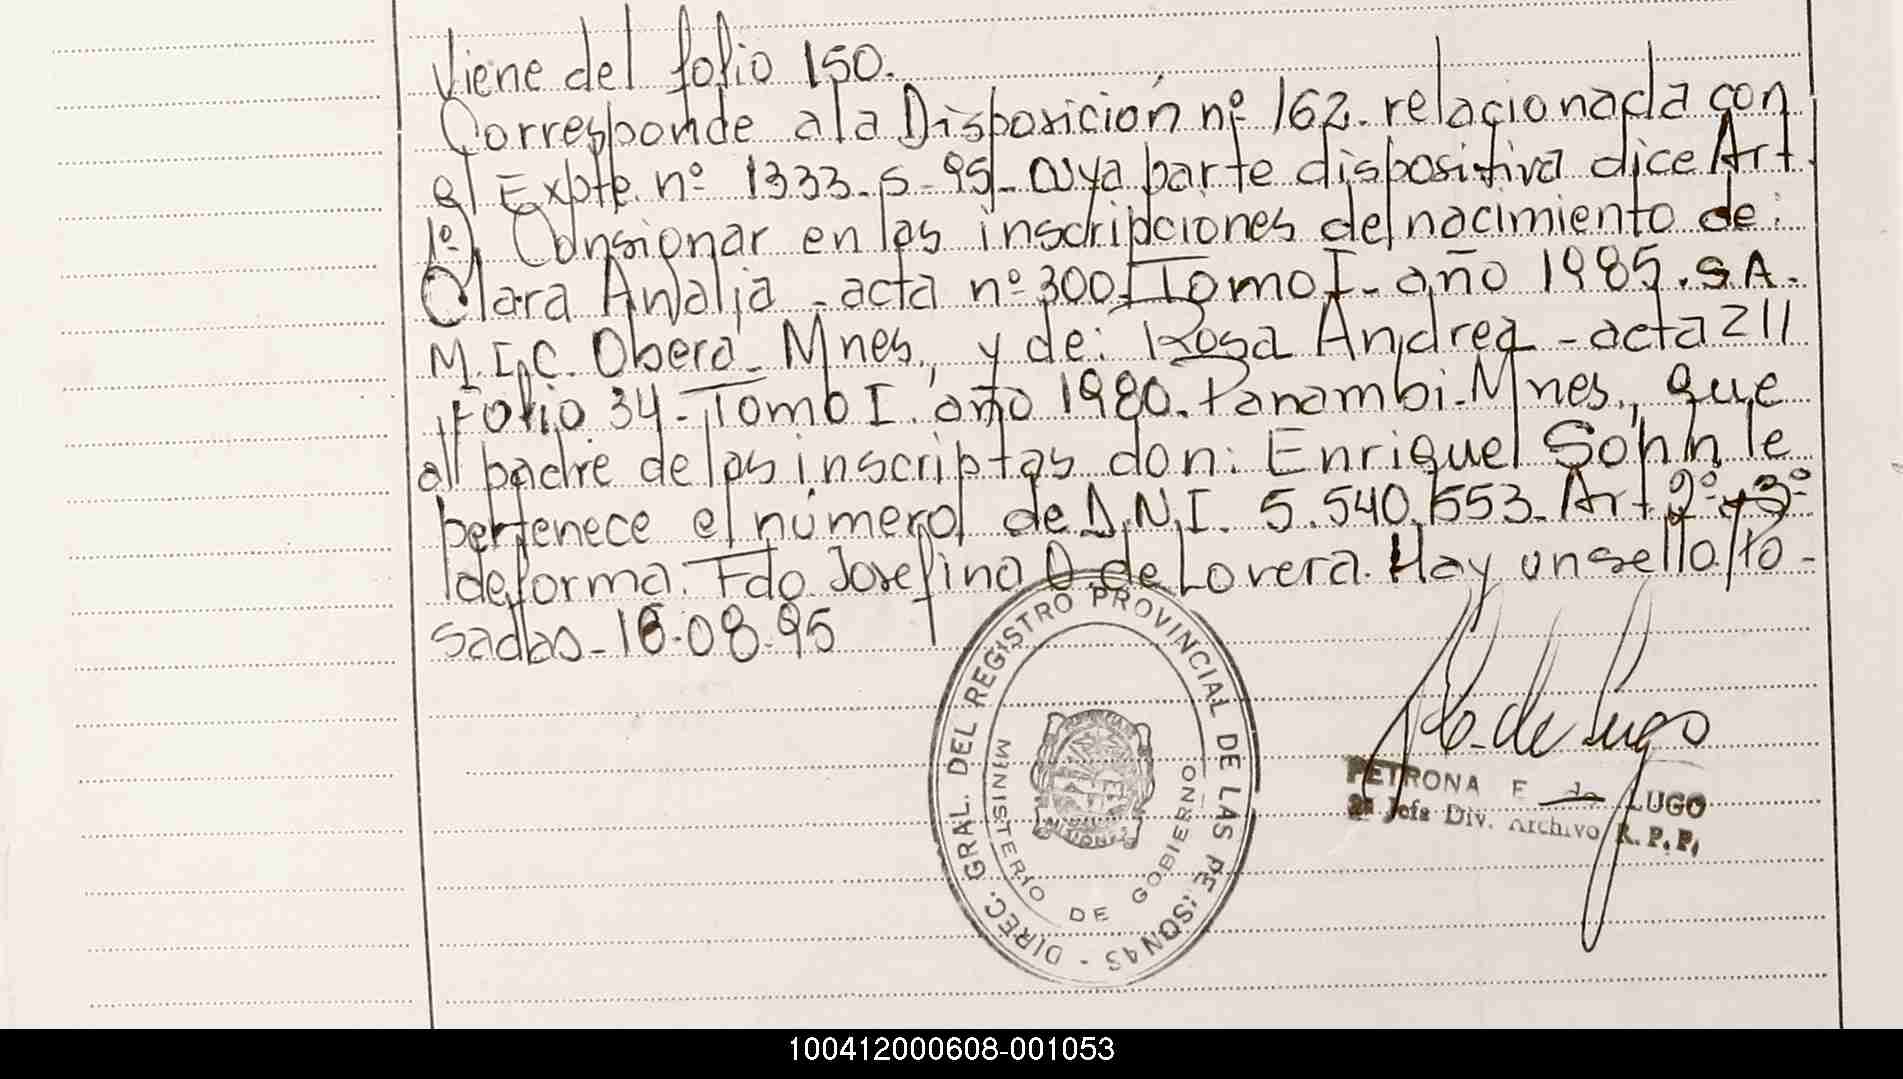 Viene del folio 150.
Corresponde a la Disposición nº 162. relacionada con
el Expte. nº 1333-S-95- cuya parte dispositiva dice Art.
1º) Consignar en las inscripciones del nacimiento de:
Clara Analia - acta nº 300 Tomo I - año 1985. S.A.
M.I.C. Obera - Mnes., y de: Rosa Andrea - acta 211
Folio 34 - Tomo I. año 1980. Panambi - Mnes., que
al padre de las inscriptas don: Enrique Sohn le
pertenece el número de D.N.I. 5.540.553. Art 2º y 3º
de forma. Fdo. Josefina O. de Lovera. Hay un sello Po-
sadas - 16-08-95
DIREC. GRAL. DEL REGISTRO PROVINCIAL DE LAS PERSONAS -
MINISTERIO DE GOBIERNO
MISIONES
de Lugo
PETRONA F. de LUGO
2ª Jefe Div. Archivo R. P. P.
100412000608-001053